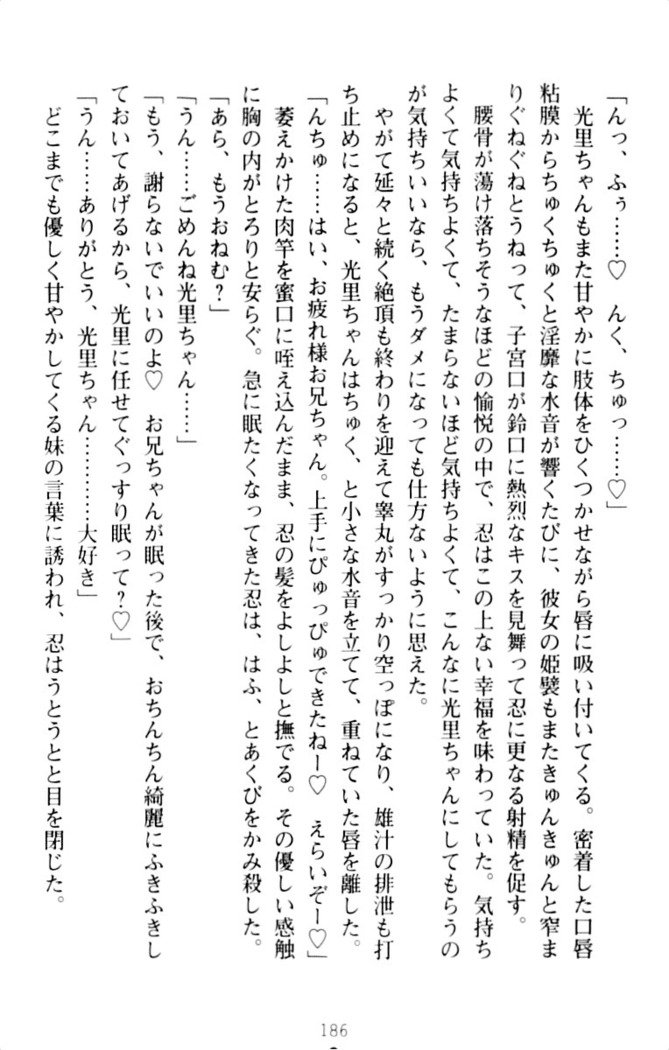 「んっ、ふぅ……♡　んく、ちゅっ……♡」
光里ちゃんもまた甘やかに肢体をひくつかせながら唇に吸い付いてくる。密着した口唇
粘膜からちゅくちゅくと淫靡な水音が響くたびに、彼女の姫襞もまたきゅんきゅんと窄ま
りぐねぐねとうねって、子宮口が鈴口に熱烈なキスを見舞って忍に更なる射精を促す。
腰骨が蕩け落ちそうなほどの愉悦の中で、忍はこの上ない幸福を味わっていた。気持ち
よくて気持ちよくて、たまらないほど気持ちよくて、こんなに光里ちゃんにしてもらうの
が気持ちいいなら、もうダメになっても仕方ないように思えた。
やがて延々と続く絶頂も終わりを迎えて睾丸がすっかり空っぽになり、雄汁の排泄も打
ち止めになると、光里ちゃんはちゅく、と小さな水音を立てて、重ねていた唇を離した。
「んちゅ……はい、お疲れ様お兄ちゃん。上手にぴゅっぴゅできたねー♡　えらいぞー♡」
萎えかけた肉竿を蜜口に咥え込んだまま、忍の髪をよしよしと撫でる。その優しい感触
に胸の内がとろりと安らぐ。急に眠たくなってきた忍は、はふ、とあくびをかみ殺した。
「あら、もうおねむ？」
「うん……ごめんね光里ちゃん……」
「もう、謝らないでいいのよ♡　お兄ちゃんが眠った後で、おちんちん綺麗にふきふきし
ておいてあげるから、光里に任せてぐっすり眠って？♡」
「うん……ありがとう、光里ちゃん…………大好き」
どこまでも優しく甘やかしてくる妹の言葉に誘われ、忍はうとうとと目を閉じた。
186